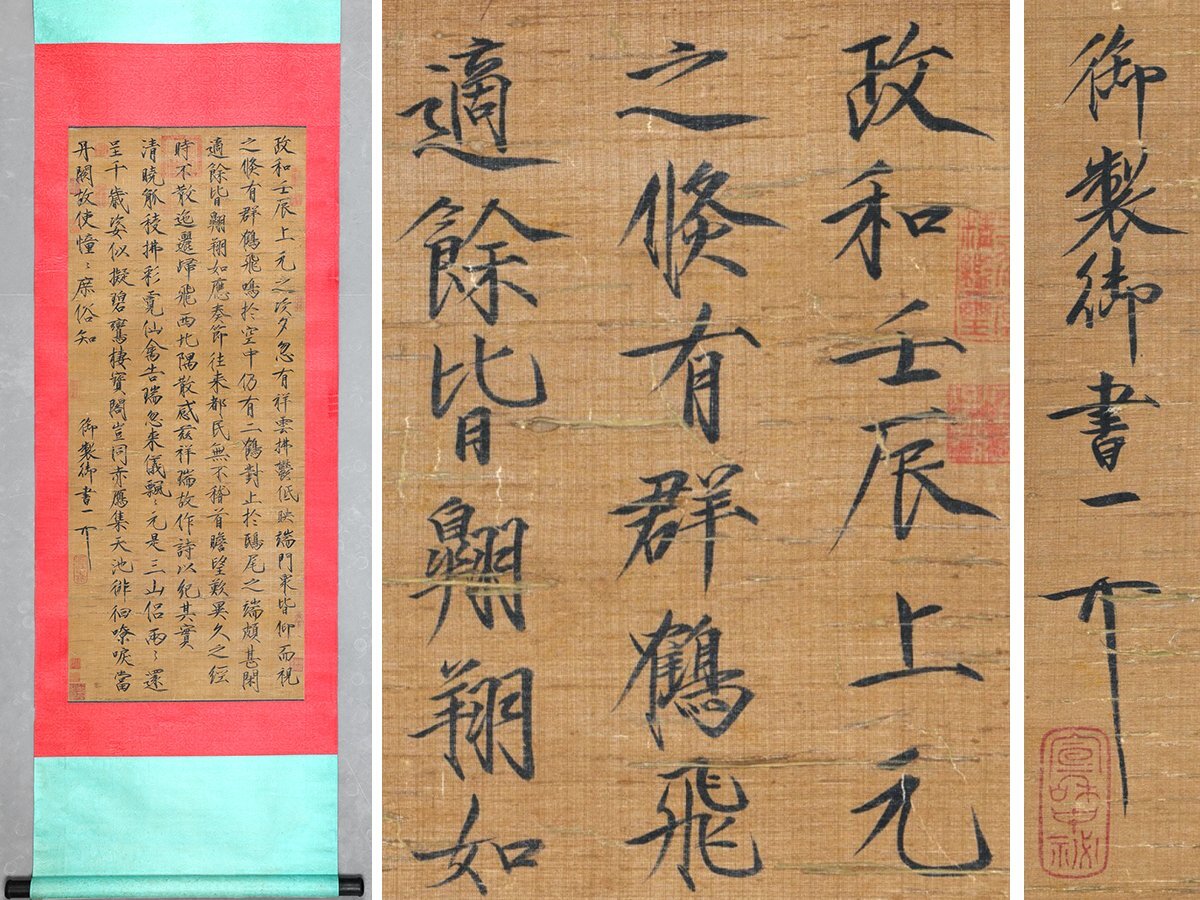 政和壬辰上元之次夕忽有祥雲拂鬱低映端門衆皆仰而視
之倏有群鶴飛鳴於空中仍有二鶴對止於鴟尾之端頗甚閑
適餘皆翱翔如應奏節往来都民無不稽首瞻望歎異久之經
時不散迤邐歸飛西北隅散感茲祥瑞故作詩以紀其實
清曉觚稜拂彩霓仙禽告瑞忽来儀飄〻元是三山侶兩〻還
呈千歲姿似擬碧鸞棲寶閣豈同赤鴈集天池徘徊嘹唳當
丹闕故使憧〻庶俗知
御製御書一
政和壬辰上元
之倏有群鶴飛
適餘皆翱翔如
御製御書一
宣和中秘